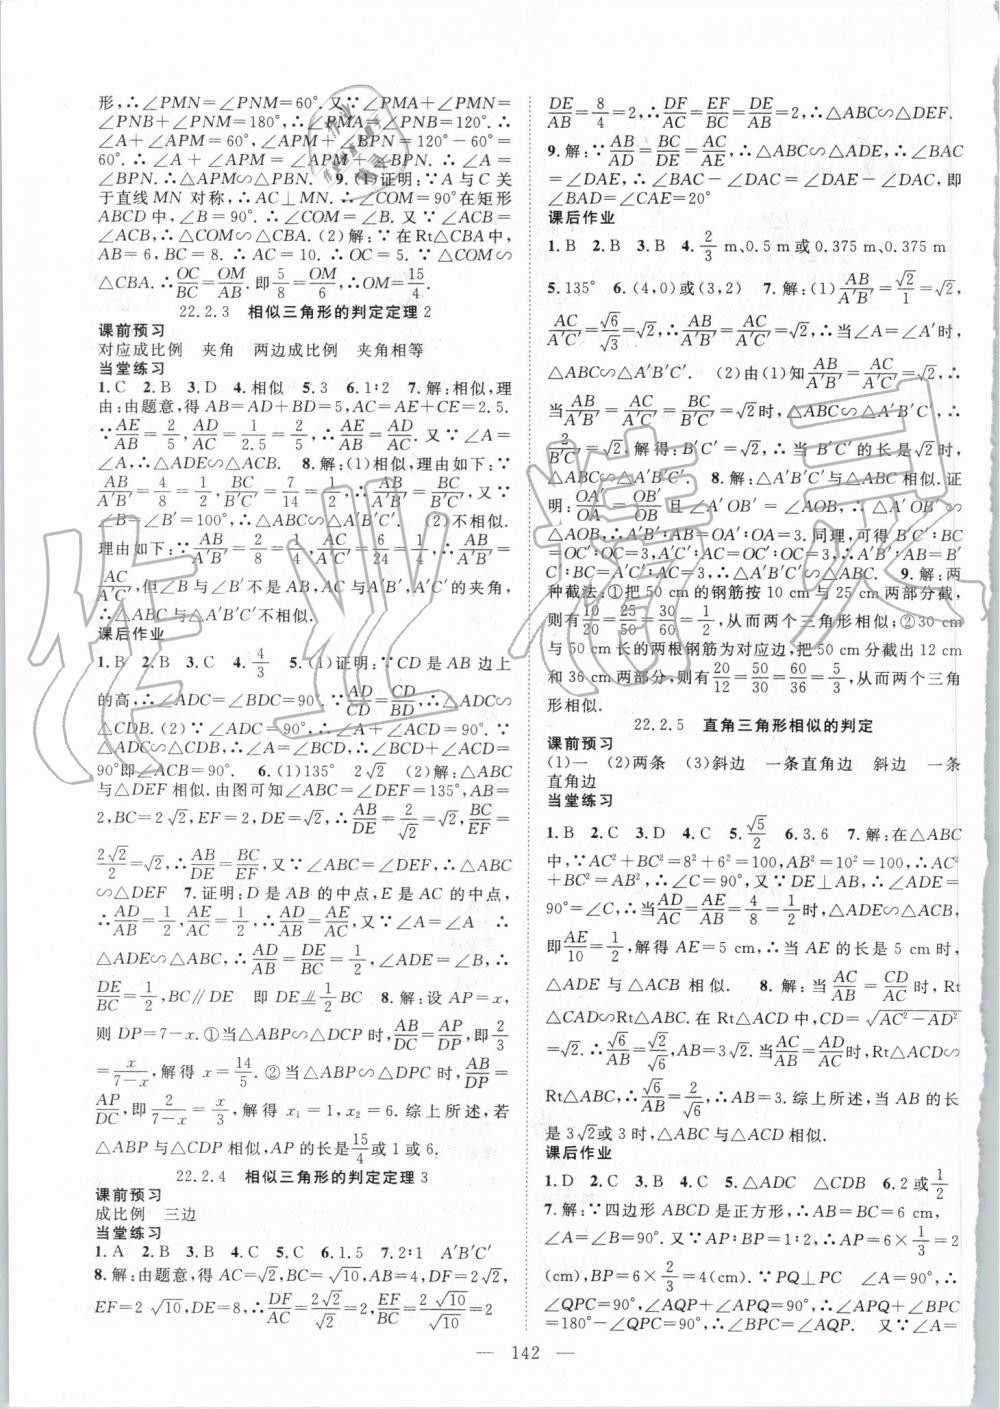 形,∴∠PMN=∠PNM=60°. 又∵∠PMA+∠PMN=
∠PNB+∠PNM=180°,∴∠PMA=∠PNB=120°.∴
∠A+∠APM=60°,∠APM+∠BPN=120°-60°=
60°.∴∠A+∠APM=∠APM+∠BPN.∴∠A=∠
BPN.∴△APM∽△PBN. 9.(1)证明:∵A与C关
于直线MN对称,∴AC⊥MN.∴∠COM=90°.在矩形
ABCD中,∠B=90°.∴∠COM=∠B.又∵∠ACB=
∠ACB,∴△COM∽△CBA.(2)解:∵在Rt△CBA中,
AB=6,BC=8.∴AC=10.∴OC=5.∵△COM∽△
CBA.∴OC/BC=OM/AB.即5/8=OM/6,∴OM=15/4.
22.2.3 相似三角形的判定定理2
课前预习
对应成比例 夹角 两边成比例 夹角相等
当堂练习
1.C 2.B 3.D 4.相似 5.3 6.1:2 7.解:相似,理
由:由题意,得AB=AD+BD=5,AC=AE+CE=2.5.
∵AE/AB=2/5,AD/AC=1/2.5=2/5,∴AE/AB=AD/AC.又∵∠A=
∠A,∴△ADE∽△ACB. 8.解:(1)相似,理由如下:∵
AB/A′B′=4/8=1/2,BC/B′C′=7/14=1/2,∴AB/A′B′=BC/B′C′,又∵
∠B=∠B′=100°,∴△ABC∽△A′B′C′.(2)不相似.
理由如下:∵AB/A′B′=2/8=1/4,AC/A′C′=6/24=1/4,∴AB/A′B′=
AC/A′C′,但∠B与∠B′不是AB、AC与A′B′,A′C′的夹角,
∴△ABC与△A′B′C′不相似.
课后作业
1.B 2.B 3.C 4.4/3 5.(1)证明:∵CD是AB边上
的高,∴∠ADC=∠BDC=90°.∵AD/CD=CD/BD,∴△ADC∽
△CDB.(2)∵∠ADC=90°,∴∠A+∠ACD=90°.
∵△ADC∽△CDB,∴∠A=∠BCD,∴∠BCD+∠ACD=
90°即∠ACB=90° 6.(1)135° 2√2 (2)△ABC
与△DEF相似.由图可知∠ABC=∠DEF=135°,AB=
2,BC=2√2,EF=2,DE=√2,∴AB/DE=2/√2=√2,BC/EF=
2√2/2=√2,∴AB/DE=BC/EF,又∵∠ABC=∠DEF,∴△ABC
∽△DEF 7.证明:D是AB的中点,E是AC的中点,
∴AD/AB=1/2,AE/AC=1/2,∴AD/AB=AE/AC,又∵∠A=∠A ∴
△ADE∽△ABC,∴AD/AB=DE/BC=1/2,∠ADE=∠B,∴
DE/BC=1/2,BC∥DE 即DE⫽1/2BC 8.解:设AP=x,
则DP=7-x.①当△ABP∽△DCP时,AB/DC=AP/DP,即2/3
=x/7-x,解得x=14/5.②当△ABP∽△DPC时,AB/DP=
AP/DC,即2/7-x=x/3,解得x₁=1,x₂=6.综上所述,若
△ABP与△CDP相似,AP的长是15/4或1或6.
22.2.4 相似三角形的判定定理3
课前预习
成比例 三边
当堂练习
1.A 2.B 3.B 4.C 5.C 6.1.5 7.2:1 A′B′C′
8.解:由题意,得AC=√2,BC=√10,AB=4,DF=2√2,
EF=2√10,DE=8,∴DF/AC=2√2/√2=2,EF/BC=2√10/√10=2
DE/AB=8/4=2,∴DF/AC=EF/BC=DE/AB=2,∴△ABC∽△DEF.
9.解:∵AB/AD=BC/DE=AC/AE,∴△ABC∽△ADE,∴∠BAC
=∠DAE,∴∠BAC-∠DAC=∠DAE-∠DAC,即
∠BAD=∠CAE=20°
课后作业
1.B 2.B 3.B 4.2/3 m、0.5 m或0.375 m、0.375 m
5.135° 6.(4,0)或(3,2) 7.解:(1)AB/A′B′=√2/1=√2,
AC/A′C′=√6/√3=√2,∴AB/A′B′=AC/A′C′,∴当∠A=∠A′时,
△ABC∽△A′B′C′.(2)由(1)知AB/A′B′=AC/A′C′=√2,∴
当AB/A′B′=AC/A′C′=BC/B′C′=√2时,△ABC∽△A′B′C′,∴
2/B′C′=√2,解得:B′C′=√2,∴当B′C′的长是√2时,
△ABC∽△A′B′C′. 8.△ABC∽△A′B′C′.证
明:∵OA′/OA=OB′/OB且∠A′OB′=∠AOB,∴△A′OB′∽
△AOB,∴A′B′:AB=OA′:OA=3.同理,可得B′C′:
BC=OC′:OC,A′C′:AC=OC′:OC,∴A′B′:AB=B′C′:
BC=A′C′:AC,∴△ABC∽△A′B′C′. 9.解:两
种截法:①把50 cm的钢筋按10 cm与25 cm两部分截,
则有10/20=25/50=30/60=1/2,从而两个三角形相似;②30 cm
与50 cm长的两根钢筋为对应边,把50 cm分截出12 cm
和36 cm两部分,则有20/12=50/30=60/36=5/3,从而两个三角
形相似.
22.2.5 直角三角形相似的判定
课前预习
(1)一 (2)两条 (3)斜边 一条直角边 斜边 一条
直角边
当堂练习
1.B 2.C 3.D 4.C 5.√5/2 6.3.6 7.解:在△ABC
中,∵AC²+BC²=8²+6²=100,AB²=10²=100,∴AC²
+BC²=AB²,∴∠C=90°,又∵DE⊥AB,∴∠ADE=
90°=∠C,∴当AD/AC=AE/AB=4/8=1/2时,△ADE∽△ACB,
即AE/10=1/2,解得AE=5 cm,∴当AE的长是5 cm时,
△ADE与△ACB相似. 8.解:当AC/AB=CD/AC时,Rt
△CAD∽Rt△ABC.在Rt△ACD中,CD=√AC²-AD²
=√2.∴√6/AB=√2/√6,∴AB=3√2;当AC/AB=AD/AC时,Rt△ACD∽
Rt△ABC,∴√6/AB=2/√6,∴AB=3.综上所述,当AB的长
是3√2或3时,△ABC与△ACD相似.
课后作业
1.D 2.B 3.A 4.C 5.△ADC △CDB 6.2或1/2
7.解:∵四边形ABCD是正方形,∴AB=BC=6 cm,
∠A=∠B=90°,又∵AP:BP=1:2,∴AP=6×1/3=2
(cm),BP=6×2/3=4(cm).∵PQ⊥PC ∠A=90°,∴
∠QPC=90°,∠AQP+∠APQ=90°.∴∠APQ+∠BPC
=180°-∠QPC=90°,∴∠AQP=∠BPC. 又∵∠A=
142
作业精灵